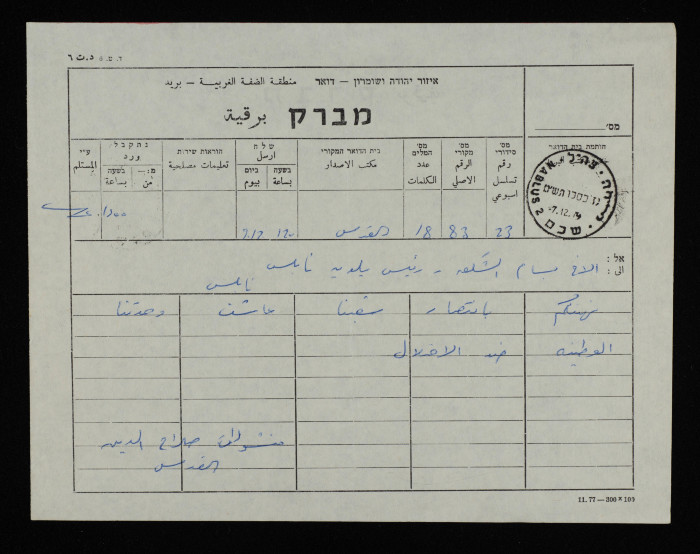 ד. ט. 6 د.ت ٦
איזור יהודה ושומרון – דואר منطقة الضفة الغربية – بريد
מברק برقية
מס׳
חותמת בית הדואר
מס׳ סידורי رقم تسلسل اسبوعي
מס׳ מקורי الرقم الاصلي
מס׳ המלים عدد الكلمات
בית הדואר המקורי مكتب الاصدار
שלח ارسل
בשעה بساعة
ביום بيوم
הוראות שירות تعليمات مصلحية
נתקבל ورد
בשעה بساعة
מ:— من
ע״י المستلم
23 83 18 القدس 120 7.12
NABLUS 2
שכם
צה״ל
-7.12.79
אל: الى:
الاخ بسام الشكعه - رئيس بلديه نابلس
نابلس
نهنئكم بانتصار شعبنا عاشت وحدتنا
الوطنيه ضد الاحتلال
منشورات صلاح الدين
القدس
11. 77 — 300 x 100